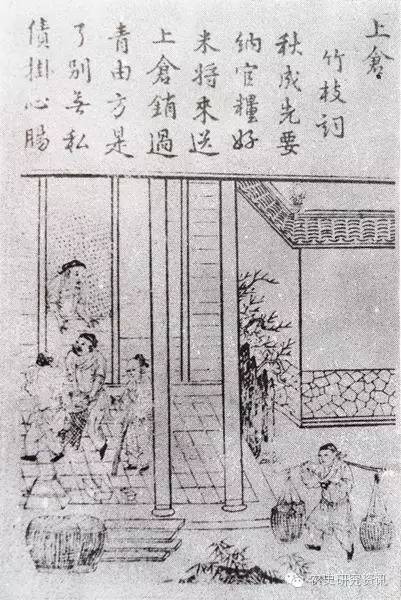 上倉
竹枝詞
秋成先要
納官糧好
米將來送
上倉銷過
青由方是
了別無私
債掛心腸
农史研究资讯